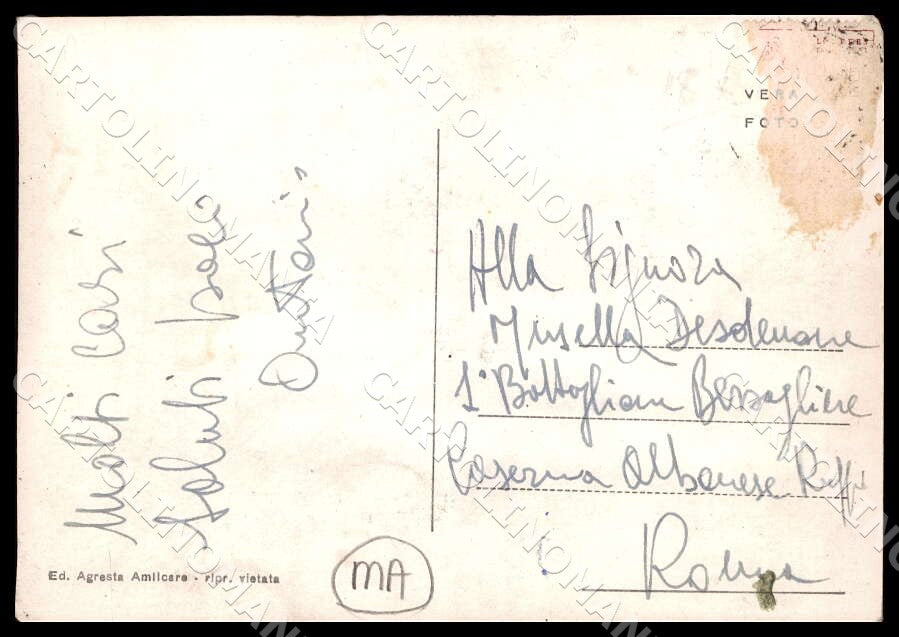 Molti cari
Saluti
VERA
FOTO
Alla Signora
Musella Desdemone
1° Battaglione Bersagliere
Caserma Albanese Ruffo
Roma
Ed. Agresta Amilcare - ripr. vietata
MA
CARTOLINOMANIA